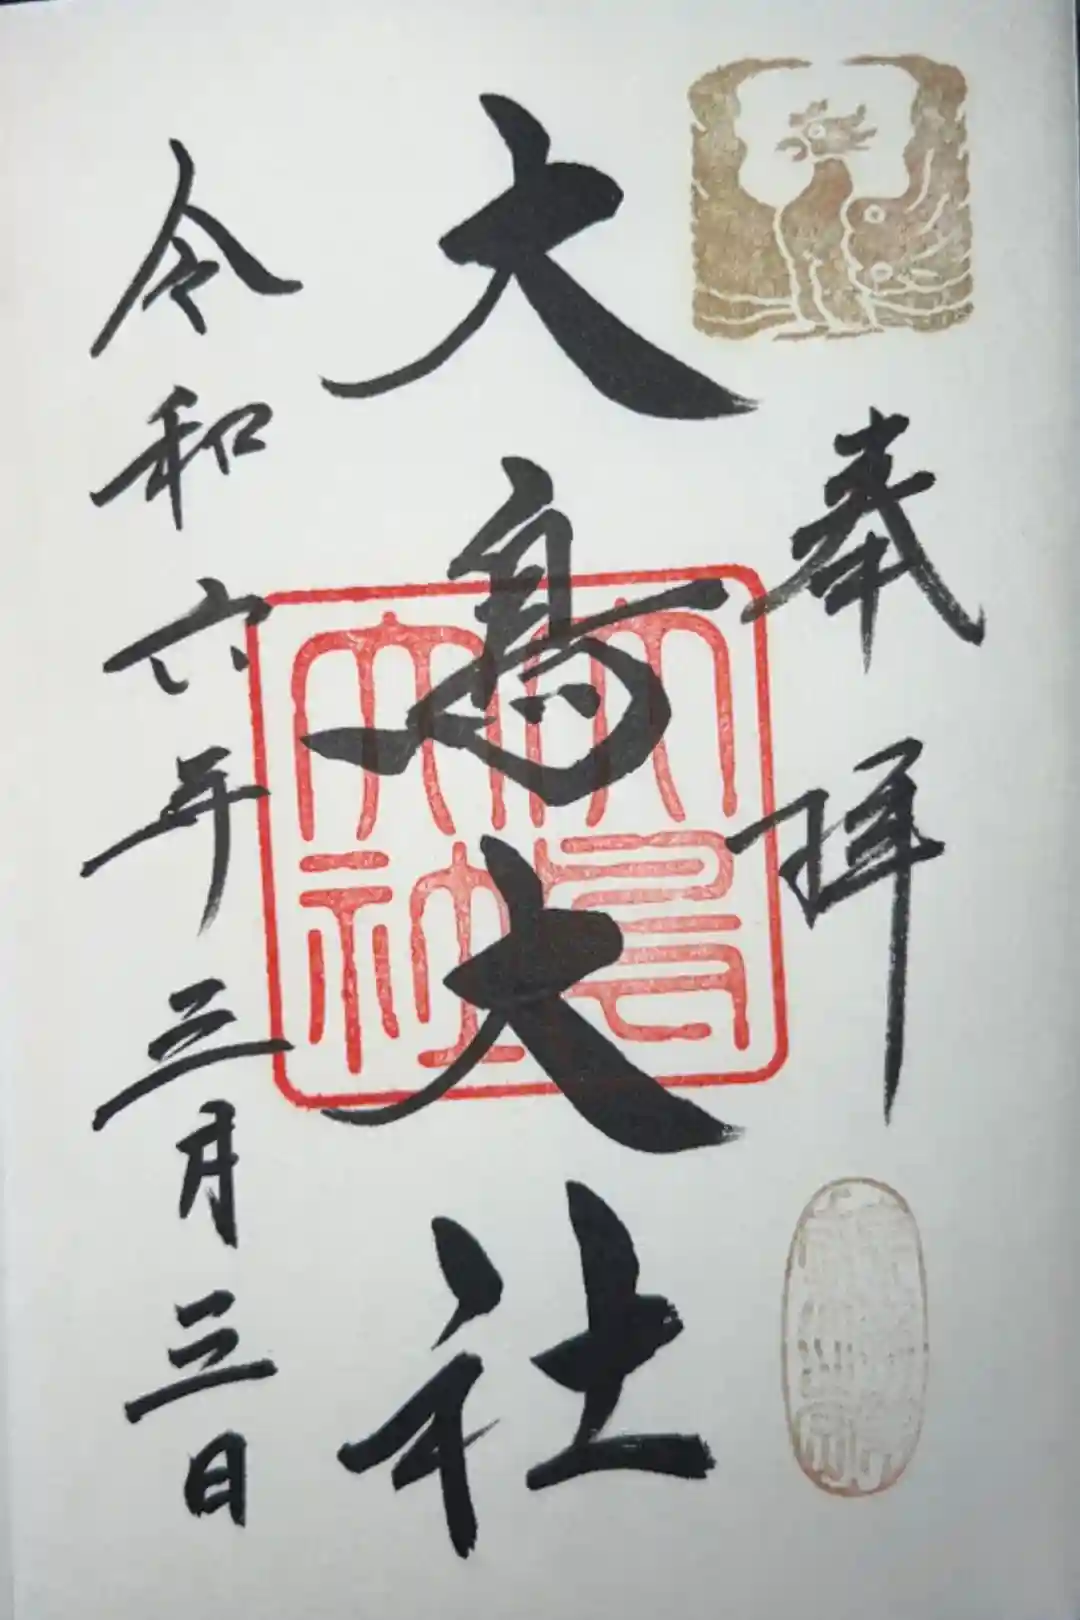 奉拝
大鳥大社
大鳥
大社
令和六年三月三日